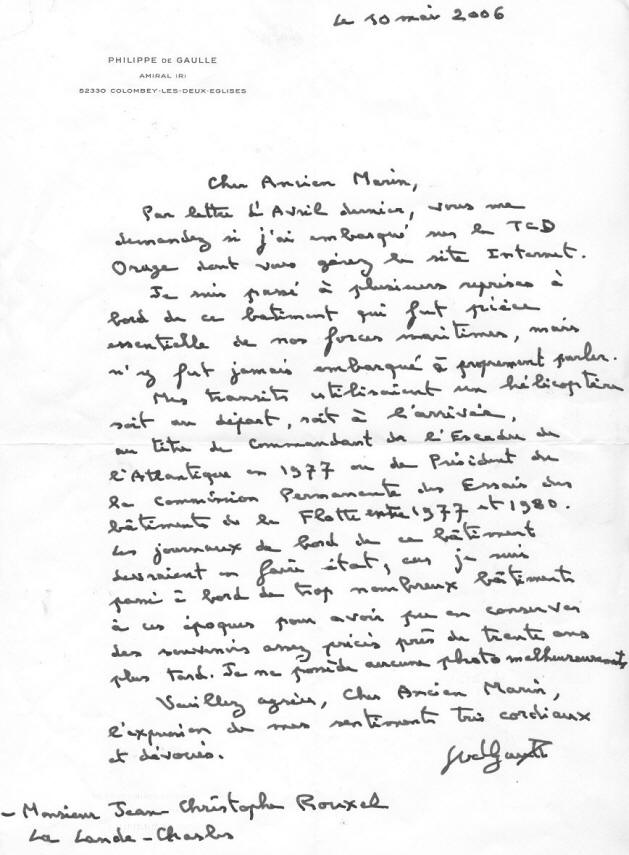 le 10 mai 2006
PHILIPPE DE GAULLE
AMIRAL (R)
52330 COLOMBEY-LES-DEUX-EGLISES
Cher Ancien Marin,
Par lettre d'Avril dernier, vous me
demandez si j'ai embarqué sur le TCD
Orage dont vous gérez le site Internet.
Je suis passé à plusieurs reprises à
bord de ce bâtiment qui fut pièce
essentielle de nos forces maritimes, mais
n'y fut jamais embarqué à proprement parler.
Mes transits utilisaient un hélicoptère
soit au départ, soit à l'arrivée,
au titre de Commandant de l'Escadre de
l'Atlantique en 1977 ou de Président de
la Commission Permanente des Essais des
bâtiments de la Flotte entre 1977 et 1980.
Les journaux de bord de ce bâtiment
devraient en faire état, car je suis
passé à bord de trop nombreux bâtiments
à ces époques pour avoir pu en conserver
des souvenirs assez précis près de trente ans
plus tard. Je ne possède aucune photo malheureusement.
Veuillez agréer, Cher Ancien Marin,
l'expression de mes sentiments très cordiaux
et dévoués.
- Monsieur Jean Christophe Rouxel
La Lande-Chasles